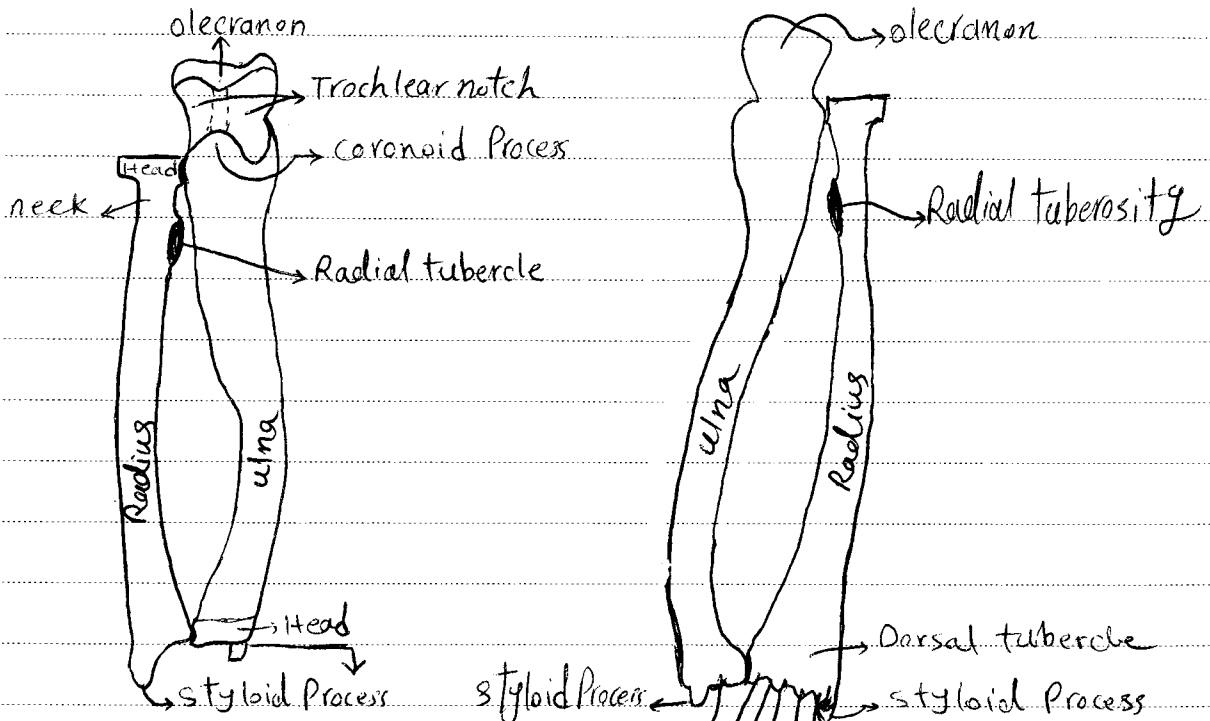 olecranon
Trochlear notch
coronoid Process
Head
neek
Radial tubercle
Radius
ulna
Head
styloid Process
olecranon
Radial tuberosity
ulna
Radius
Dorsal tubercle
styloid Process
styloid Process